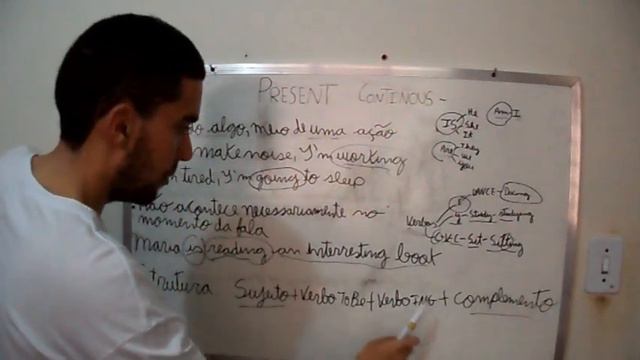 PRESENT CONTINOUS -
algo, meio de uma ação
make noise, I'm working
tired, I'm going to sleep
• Não acontece necessariamente no
momento da fala
Maria is reading an interesting book
Sujeito + Verbo To Be + Verbo ING + Complemento
IS
He
She
It
Am
I
Are
They
We
You
Verbo
E
DANCE - Dancing
Y
Study - Studying
C+V+C - Sit - Sitting